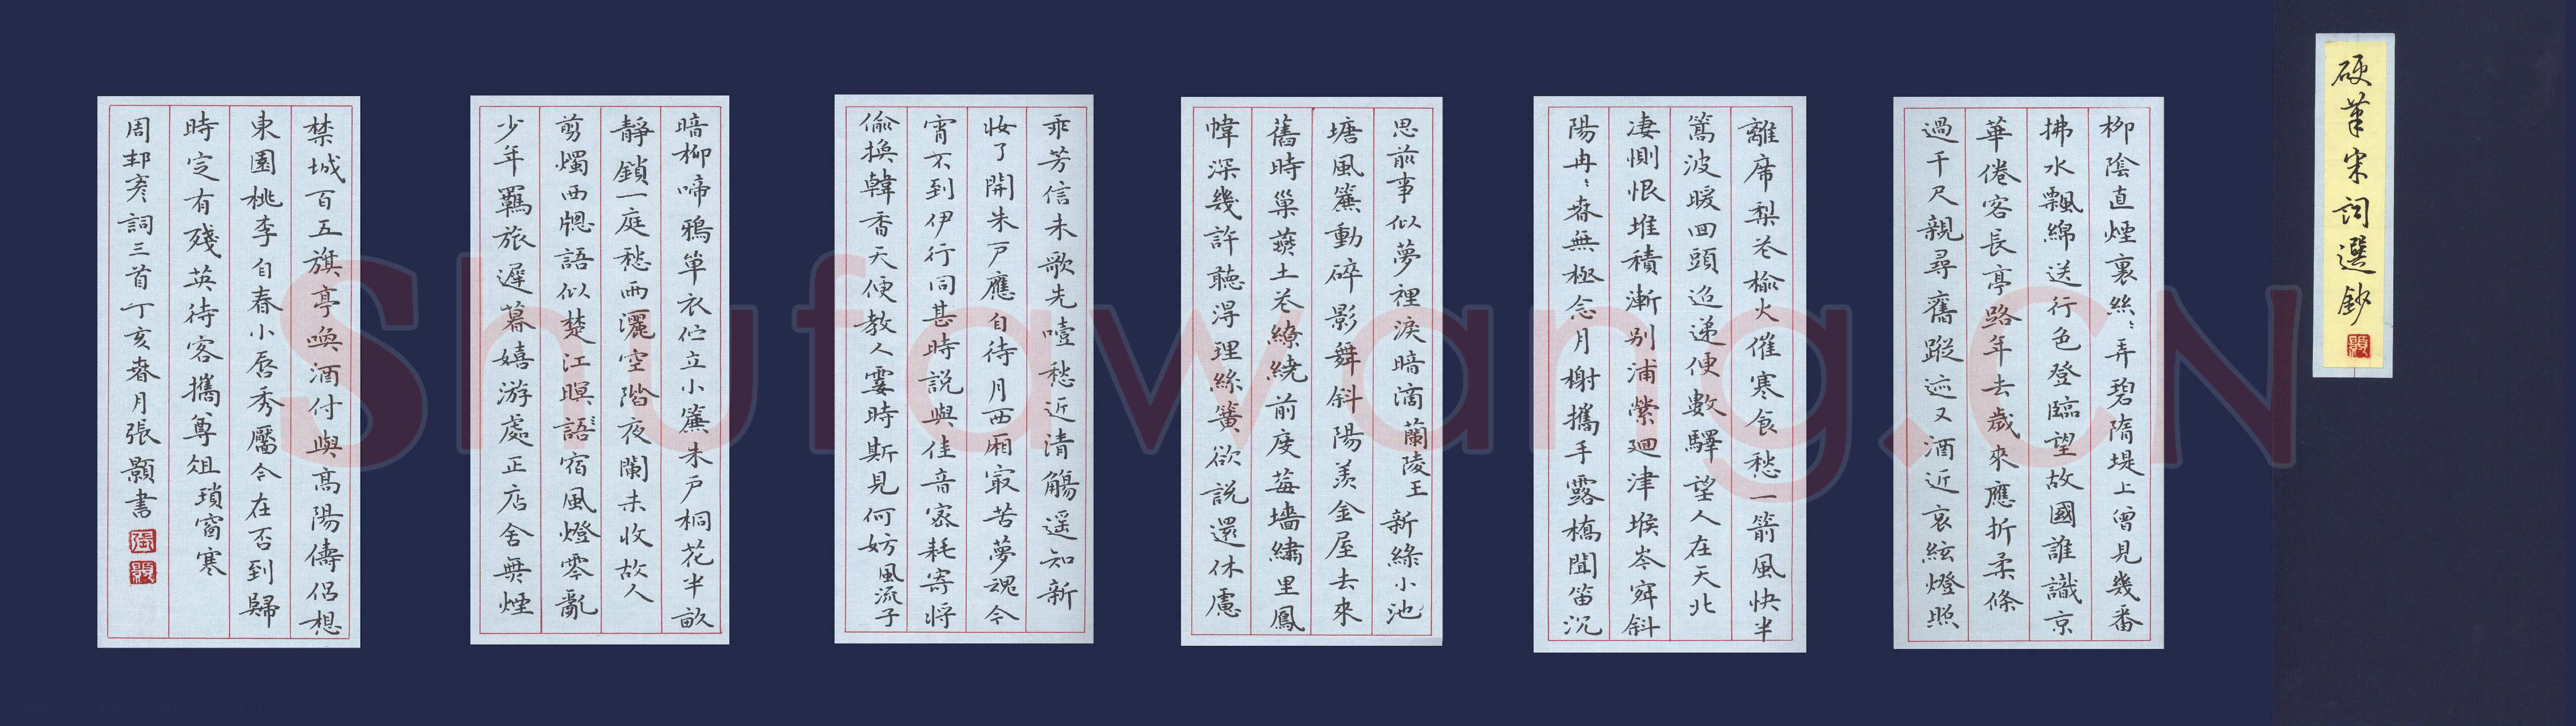 硬筆宋詞選鈔
柳陰直煙裏絲絲弄碧隋堤上曾見幾番
拂水飄綿送行色登臨望故國誰識京
華倦客長亭路年去歲來應折柔條
過千尺親尋舊蹤迹又酒近哀絃燈照
離席梨花榆火催寒食愁一箭風快半
篙波暖回頭迢递便數驛望人在天北
凄惻恨堆積漸別浦縈迴津堠岑寂斜
陽冉冉春無極念月榭攜手露橋聞笛沉
思前事似夢裡淚暗滴蘭陵王新綠小池
塘風簾動碎影舞斜陽羨金屋去來
舊時巢燕土花繚繞前度莓墻繡里鳳
幃深幾許聽得理絲簧欲説還休慮
乖芳信未歌先噎愁近清觴遥知新
妝了開朱戸應自待月西厢寂苦夢魂今
宵不到伊行问甚時說與佳音密耗寄將
偷換韓香天便教人霎時厮見何妨風流子
暗柳啼鴉單衣伫立小簾朱戸桐花半畝
靜鎖一庭愁雨灑空階夜闌未收故人
剪燭西牕語似楚江暝語宿風燈零亂
少年羈旅遲暮嬉游處正店舍無煙
禁城百五旗亭喚酒付與高陽儔侣想
東園桃李自春小唇秀靨今在否到歸
時定有殘英待客攜尊俎瑣窗寒
周邦彥詞三首丁亥春月張顥書
Shufawang.CN